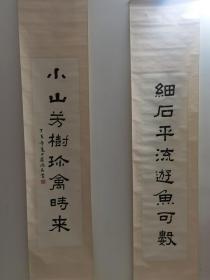 細石平流遊魚可數
小山芳樹珍禽時来